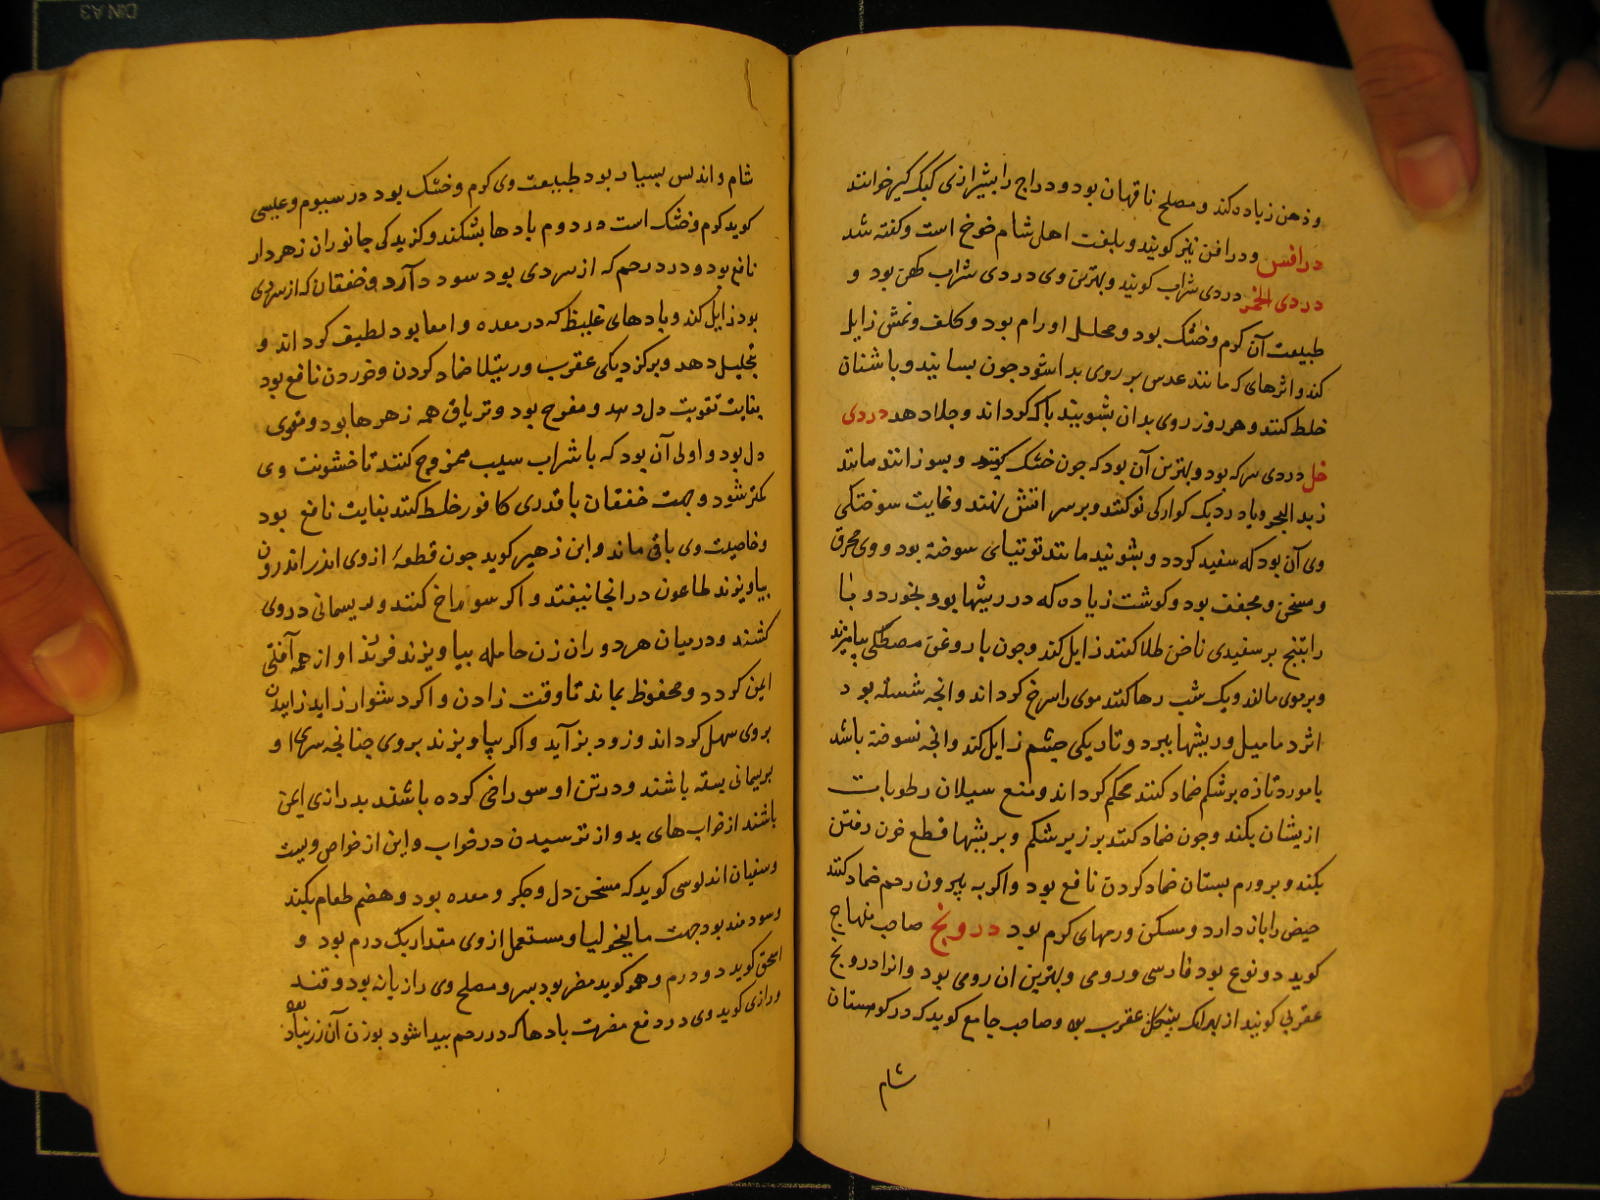 و ذهن زیاده کند و مصلح ناقهان بود و دراج را بشیرازی کبک کیرخوانند
درافس و درافن نیز کویند و بلغت اهل شام خوخ است و کفته شد
دردی الخمر دردی شراب کویند و بهترین وی دردی شراب کهن بود و
طبیعت آن کرم و خشک بود و محلل اورام بود و کلف و نمش زایل
کند و اثرهای که مانند عدس بر روی بدا شود جون بسایند و با شنان
خلط کنند و هر روز روی بدان بشویند باک کرداند و جلا دهد دردی
خل دردی سرکه بود و بهترین آن بود که جون خشک کنند و بسوزانند مانند
زبد البحر و باید در دیک کوارکی نو کنند و بر سر آتش نهند و غایت سوختکی
وی آن بود که سفید کردد و بشویند مانند توتیای سوخته بود و وی محرق
و مسخن و مجفف بود و کوشت زیاده که در ریشها بود بخورد و با
راتینج بر سفیدی ناخن طلا کنند زایل کند و جون با روغن مصطکی بیامیزند
و بر موی مالند و یک شب رها کنند موی را سرخ کرداند و انجه شسته بود
اثر دمامیل و ریشها ببرد و تاریکی جشم زایل کند و انجه نسوخته باشد
با مورد تازه بر شکم ضماد کنند محکم کرداند و منع سیلان رطوبات
ازیشان بکند و جون ضماد کنند بر زیر شکم و بر بیشها قطع خون رفتن
بکند و بر ورم بستان ضماد کردن نافع بود و اکر به بیرون رحم ضماد کنند
حیض را باز دارد و مسکن ورمهای کرم بود درونج صاحب منهاج
کوید دو نوع بود فارسی و رومی و بهترین ان رومی بود و انرا درونج
عقربی کویند از بهر انک بشکل عقرب بود و صاحب جامع کوید که در کوهستان
شام
شام و اندلس بسیار بود طبیعت وی کرم و خشک بود در سیوم و عیسی
کوید کرم و خشک است در دوم بادها بشکند و کزیدکی جانوران زهردار
نافع بود و درد رحم که از سردی بود سود دارد و خفقان که از سردی
بود زایل کند و بادهای غلیظ که در معده و امعا بود لطیف کرداند و
تحلیل دهد و بر کزیدکی عقرب و رتیلا ضماد کردن و خوردن نافع بود
بغایت تقویت دل دهد و مفرح بود و تریاق همه زهرها بود و مقوی
دل بود و اولی آن بود که با شراب سیب ممزوج کنند تا خشونت وی
کمتر شود و جهت خفقان با قدری کافور خلط کنند بغایت نافع بود
و خاصیت وی باقی ماند و ابن زهر کوید جون قطعهٔ از وی اندر اندرون
بیاویزند طاعون در انجا نیفتد و اکر سوراخ کنند و ریسمانی در وی
کشند و در میان هر دو ران زن حامله بیاویزند فرزند او از همه آفتی
ایمن کردد و محفوظ بماند تا وقت زادن و اکر دشوار زاید زاییدن
بروی سهل کرداند و زود بزآید و اکر بیاویزند بروی جنانجه سرهای او
بریسمانی بسته باشند و در تن او سوراخی کرده باشند بدرازی ایمن
باشند از خواب های بد و از ترسیدن در خواب و این از خواص ویست
و سفیان اندلوسی کوید که مسخن دل و جکر و معده بود و هضم طعام بکند
و سودمند بود جهت مالیخولیا و مستعمل از وی مقدار یک درم بود و
اسحق کوید دو درم و همو کوید مضر بود بسر و مصلح وی رازیانه بود و قند
و رازی کوید وی در دفع مضرت بادها که در رحم بیدا شود بوزن آن زرنباد بود